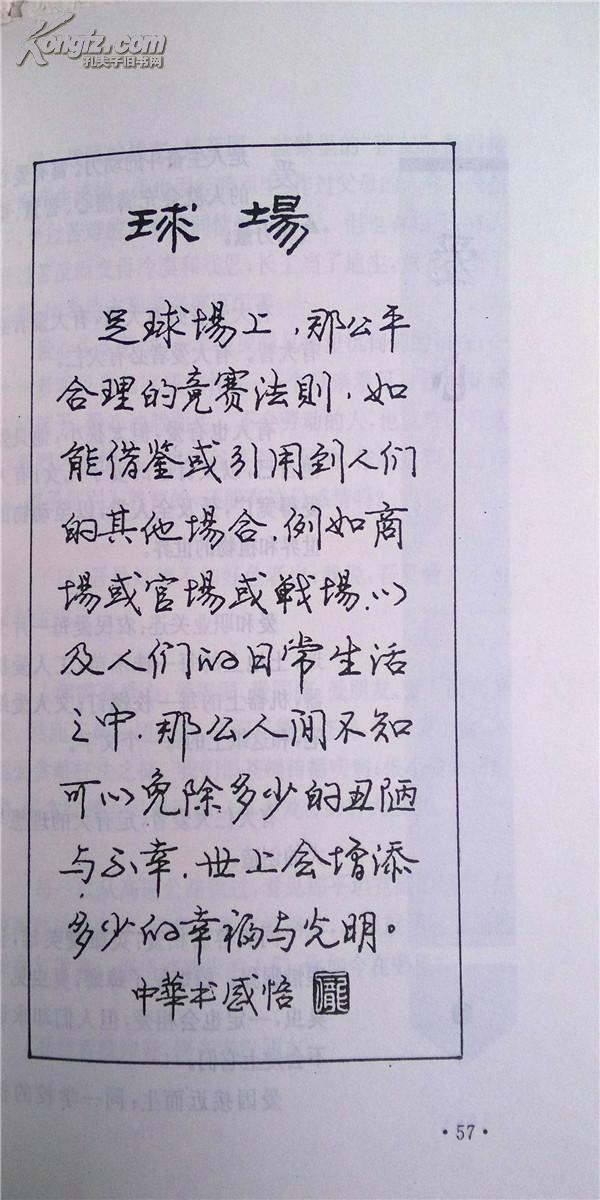 Kongfz.com
孔夫子旧书网
球 場
足球場上，那公平
合理的竞赛法則，如
能借鉴或引用到人们
的其他場合，例如商
場或官場或戦場，以
及人们的日常生活
之中 那么人间不知
可以免除多少的丑陋
与不幸，世上会增添
多少的幸福与光明。
中華 感悟
·57·